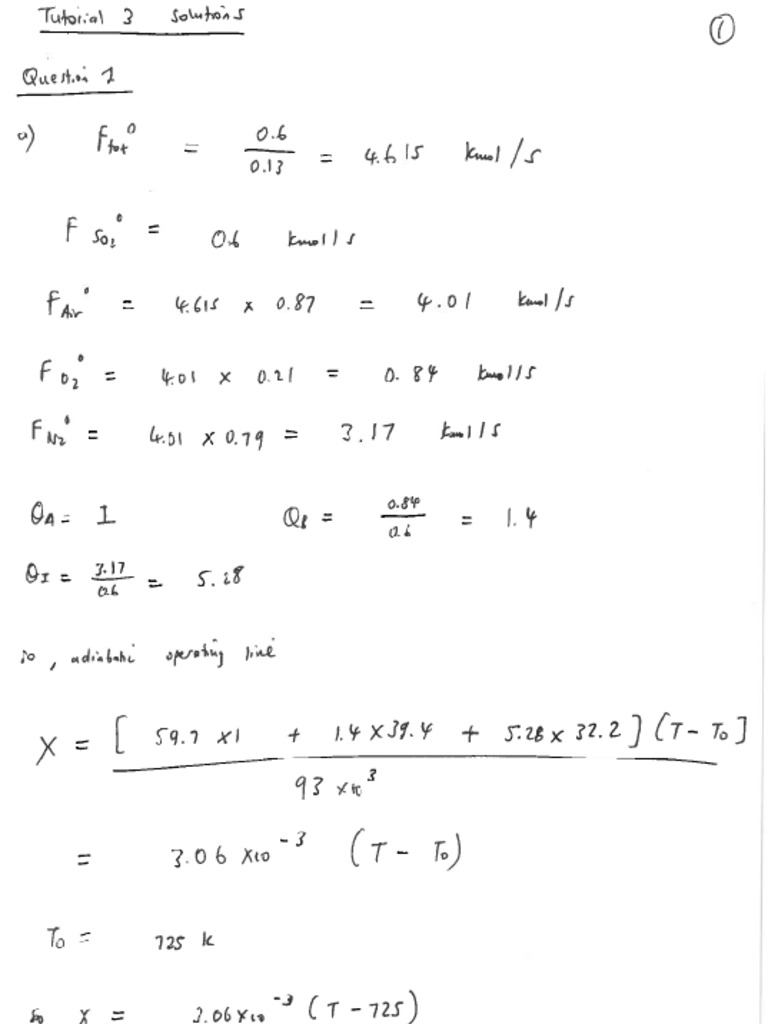 Tutorial 3 Solutions
①
Question 1
a) F_tot^0 = 0.6 / 0.13 = 4.615 kmol/s
F_SO2^0 = 0.6 kmol/s
F_Air^0 = 4.615 x 0.87 = 4.01 kmol/s
F_O2^0 = 4.01 x 0.21 = 0.84 kmol/s
F_N2^0 = 4.01 x 0.79 = 3.17 kmol/s
θ_A = 1 θ_B = 0.84 / 0.6 = 1.4
θ_I = 3.17 / 0.6 = 5.28
so, adiabatic operating line
X = [59.7 x 1 + 1.4 x 39.4 + 5.28 x 32.2] (T - T0] / 93 x10^3
= 3.06 x10^-3 (T - T0)
T0 = 725 K
so X = 3.06 x10^-3 (T - 725)